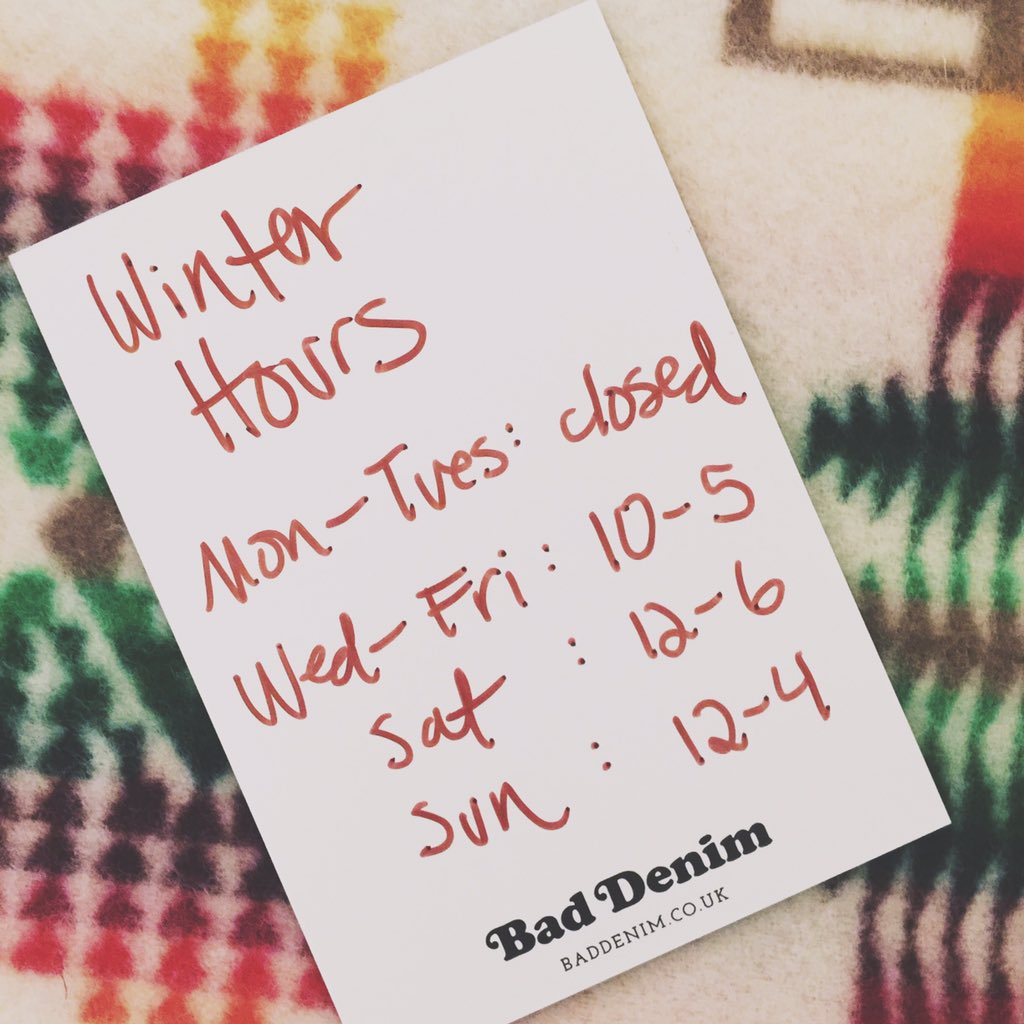 Winter
Hours
Mon-Tues: closed
Wed-Fri: 10-5
Sat : 12-6
Sun : 12-4
Bad Denim
BADDENIM.CO.UK